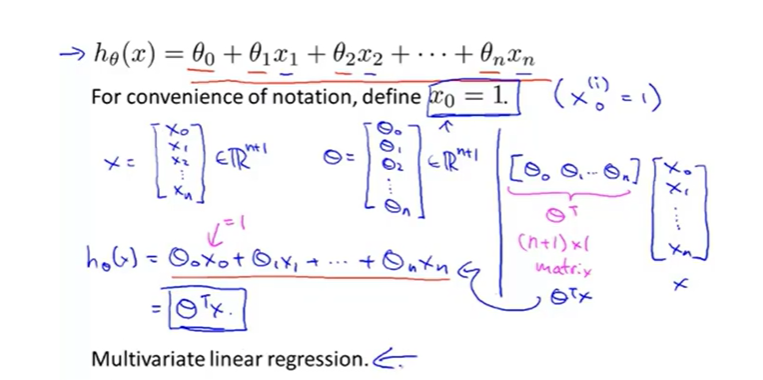 → hθ(x) = θ₀ + θ₁x₁ + θ₂x₂ + ⋯ + θₙxₙ
For convenience of notation, define x₀ = 1. (x₀⁽ⁱ⁾ = 1)
x = [x₀ x₁ x₂ ⋮ xₙ] ∈ ℝⁿ⁺¹ θ = [θ₀ θ₁ θ₂ ⋮ θₙ] ∈ ℝⁿ⁺¹
[θ₀ θ₁ ⋯ θₙ] [x₀ x₁ ⋮ xₙ]
θᵀ
(n+1) × 1
matrix
x
θᵀx
=1
hθ(x) = θ₀x₀ + θ₁x₁ + ⋯ + θₙxₙ
= θᵀx.
Multivariate linear regression. ←